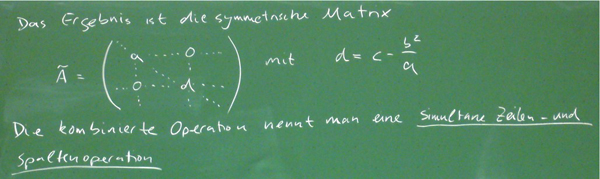 Das Ergebnis ist die symmetrische Matrix
Ã = ( a ... 0 ... 
0 ... d ... ) mit d = c - b²/a
Die kombinierte Operation nennt man eine simultane Zeilen- und
Spaltenoperation